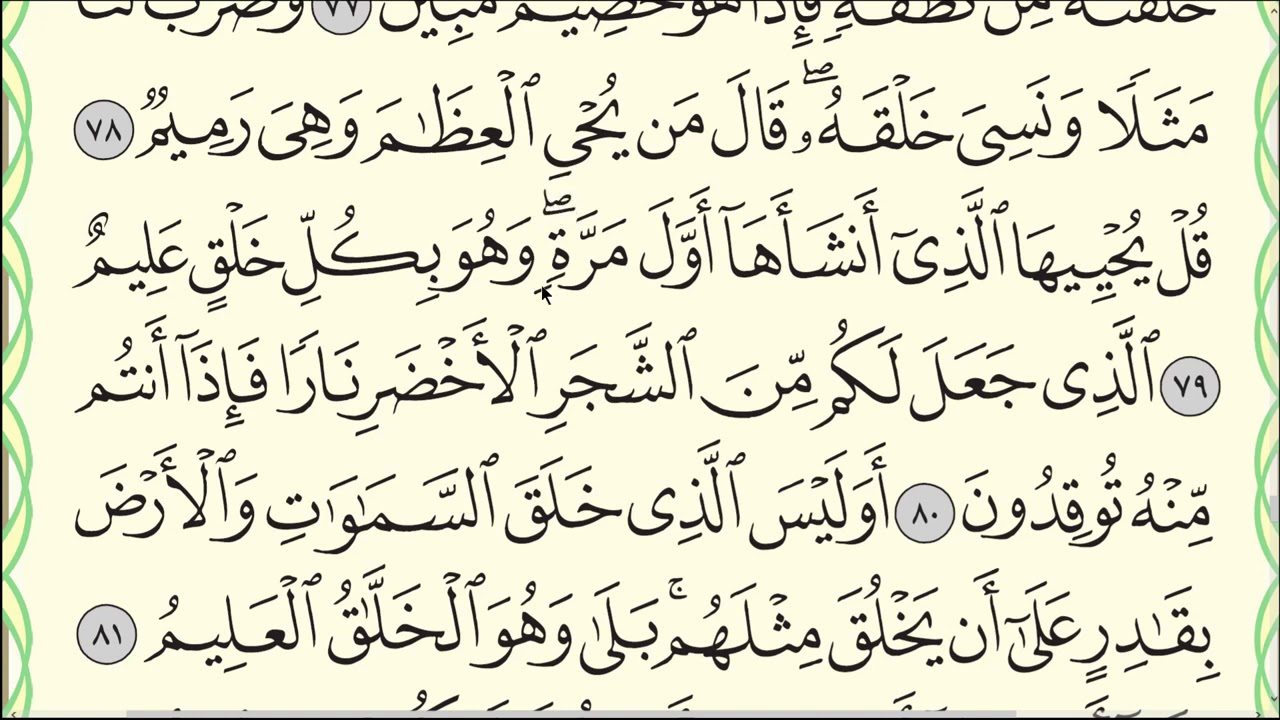 خَلَقْنَٰهُ مِن نُّطْفَةٍ فَإِذَا هُوَ خَصِيمٌ مُّبِينٌ ٧٧ وَضَرَبَ لَنَا
مَثَلًا وَنَسِىَ خَلْقَهُۥ ۖ قَالَ مَن يُحْىِ ٱلْعِظَٰمَ وَهِىَ رَمِيمٌ ٧٨
قُلْ يُحْيِيهَا ٱلَّذِىٓ أَنشَأَهَآ أَوَّلَ مَرَّةٍ ۖ وَهُوَ بِكُلِّ خَلْقٍ عَلِيمٌ
٧٩ ٱلَّذِى جَعَلَ لَكُم مِّنَ ٱلشَّجَرِ ٱلْأَخْضَرِ نَارًا فَإِذَآ أَنتُم
مِّنْهُ تُوقِدُونَ ٨٠ أَوَلَيْسَ ٱلَّذِى خَلَقَ ٱلسَّمَٰوَٰتِ وَٱلْأَرْضَ
بِقَٰدِرٍ عَلَىٰٓ أَن يَخْلُقَ مِثْلَهُم ۚ بَلَىٰ وَهُوَ ٱلْخَلَّٰقُ ٱلْعَلِيمُ ٨١